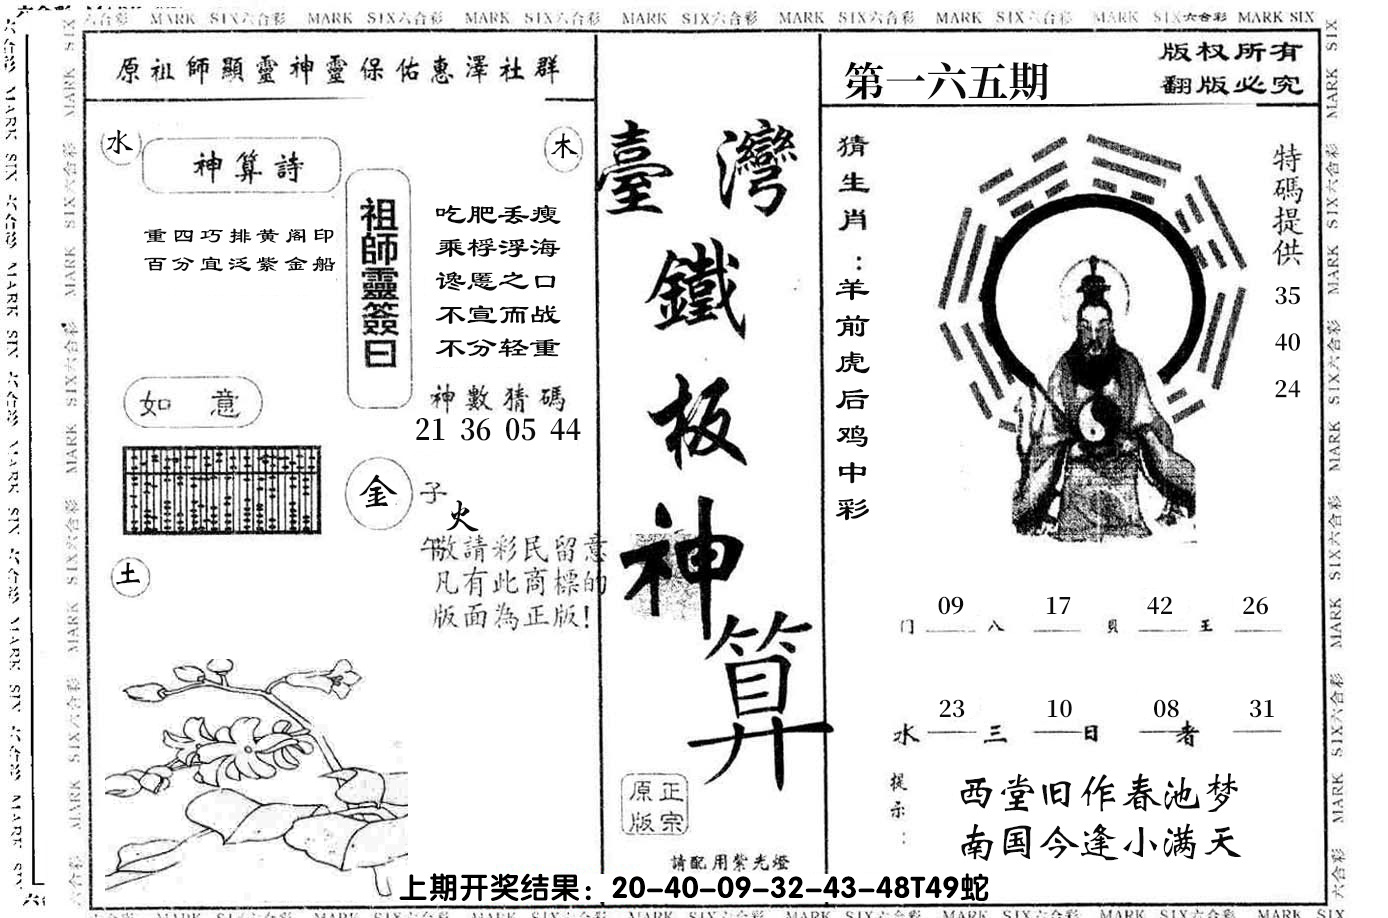 MARK SIX六合彩 MARK SIX六合彩 MARK SIX六合彩 MARK SIX六合彩 MARK SIX六合彩 MARK SIX六合彩 MARK SIX六合彩 MARK SIX
原祖師顯靈神靈保佑惠澤社群
水
神算詩
木
重四巧排黄阁印
百分宜泛紫金船
祖師靈簽曰
吃肥丢瘦
乘桴浮海
谗慝之口
不宣而战
不分轻重
如 意
神數猜碼
21 36 05 44
金
子
火
午
敬請彩民留意
凡有此商標的
版面為正版!
土
臺灣
鐵
板
神
算
正宗
原版
請配用紫光燈
第一六五期
版权所有
翻版必究
猜生肖：羊前虎后鸡中彩
特碼提供
35
40
24
09 17 42 26
门 八 貝 王
23 10 08 31
水 三 日 者
提示：
西堂旧作春池梦
南国今逢小满天
上期开奖结果：20-40-09-32-43-48T49蛇